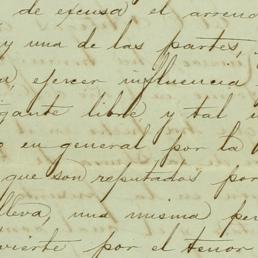 de excusa el arren
y una de las partes,
, ejercer influencia
gante libre, y tal
en general por la
que son reputados por
lleva, una misma per
vierte por el tenor